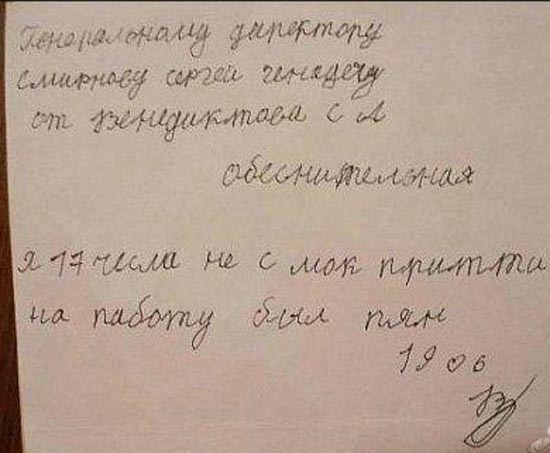 Генеральному директору
смирнову сергей генадечу
от Венедиктова С Л
обеснительная
я 17 числа не с мок притти
на работу был пян
19 06